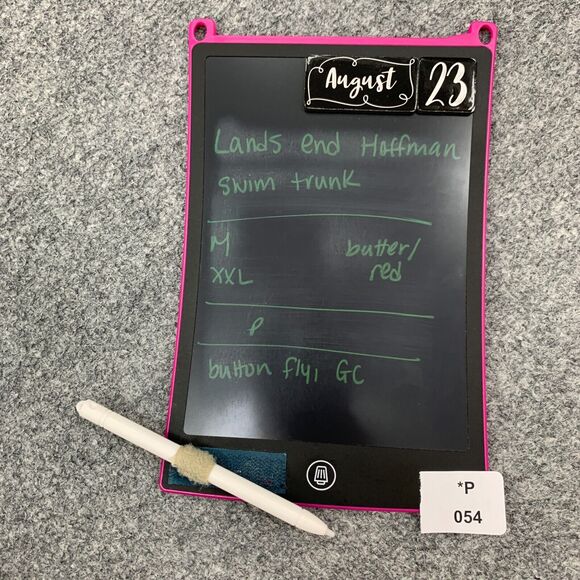 August 23
Lands end Hoffman
swim trunk
M butter/
XXL red
P
button fly, GC
*P
054